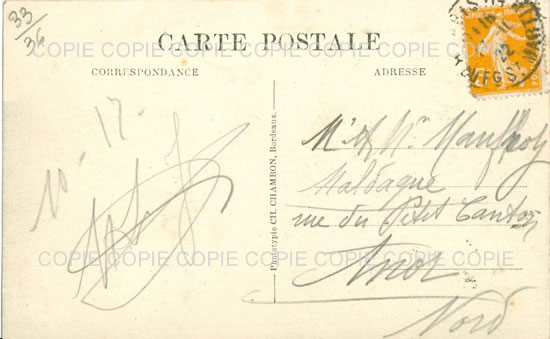 33/36
CARTE POSTALE
COPIE COPIE COPIE COPIE COPIE COPIE COPIE
CORRESPONDANCE
ADRESSE
Phototypie CH. CHAMBON, Bordeaux.
COPIE COPIE COPIE COPIE COPIE COPIE COPIE
10. 17.
Maldague
rue du Petit Canton
COPIE COPIE COPIE COPIE COPIE COPIE COPIE
Anor
Nord